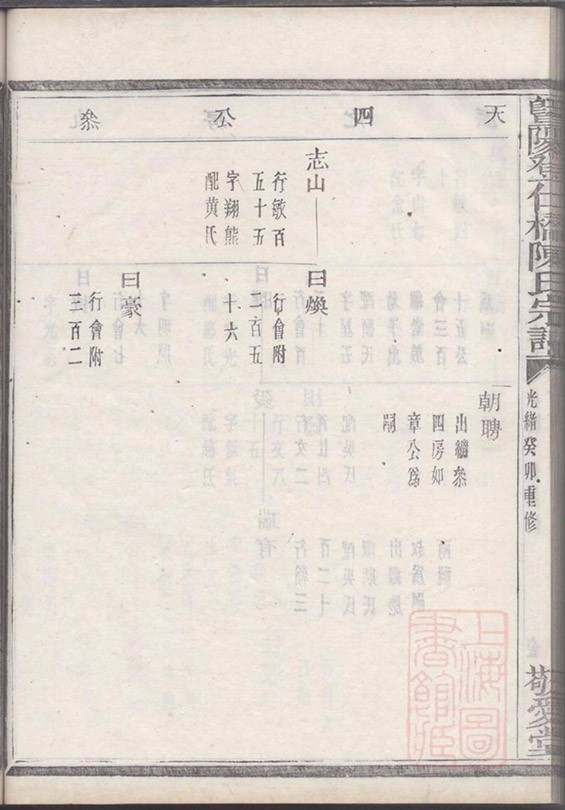 暨陽登仕橋陳氏宗譜
光緒癸卯重修
敬愛堂
天四公叅
朝聘
出繼叅
四房如
章公爲
嗣
志山
行敏百
五十五
字翔熊
配黄氏
曰煥
行會附
二百五
十六
曰豪
行會附
三百二
上海圖書館藏